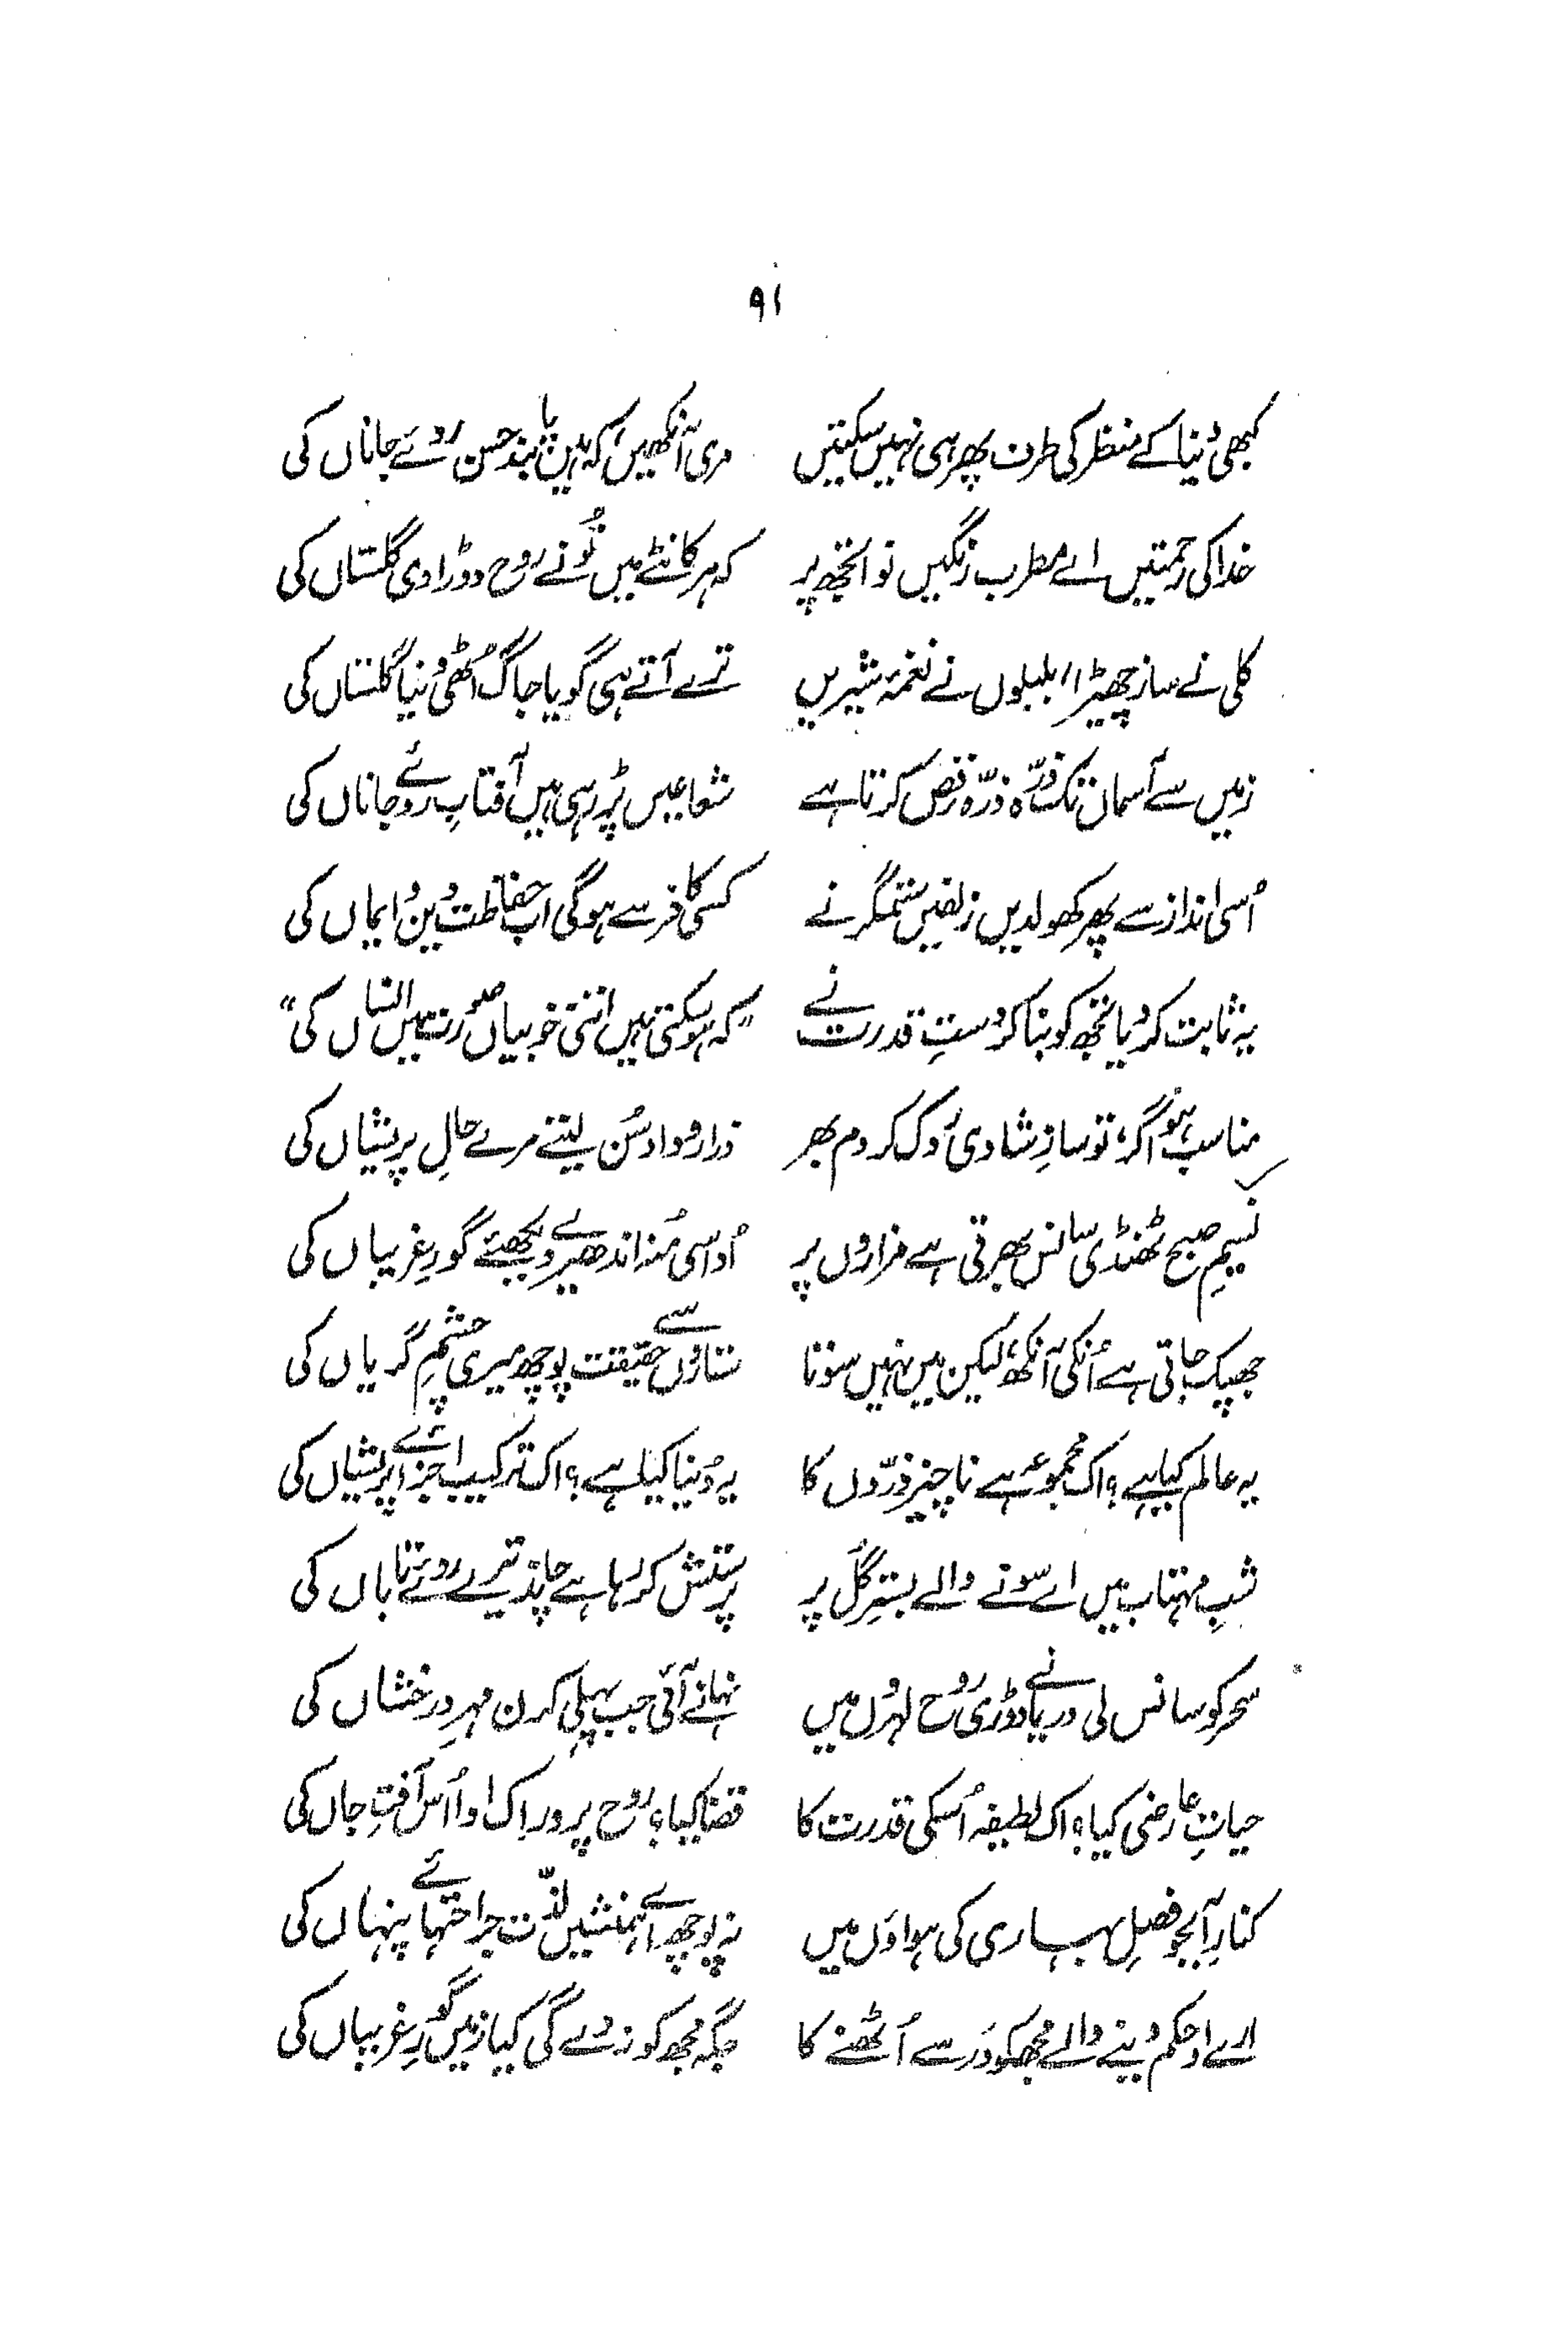 ۹۱
کبھی دُنیا کے منظر کی طرف پھر ہی نہیں سکتیں مری آنکھیں، کہ ہیں پابندِ حسن روئے جاناں کی
خدا کی رحمتیں اے مطرب رنگیں نوا تجھ پر کہ ہر کانٹے میں تُو نے روح دوڑا دی گلستاں کی
کلی نے ساز چھیڑا، بلبلوں نے نغمۂ شیریں ترے آتے ہی گویا جاگ اُٹھی دُنیا گلستاں کی
زمیں سے آسماں تک ذرّہ ذرّہ رقص کرتا ہے شعاعیں پڑ رہی ہیں آفتابِ روئے جاناں کی
اُسی انداز سے پھر کھولدیں زلفیں ستمگر نے کسی کافر سے ہوگی اب حفاظت دین و ایماں کی
یہ ثابت کر دیا تجھ کو بنا کر دستِ قدرت نے "کہ ہو سکتی ہیں اتنی خوبیاں صورت میں انساں کی"
مناسب ہو اگر، تو سازِ شادی روک کر دم بھر ذرا روداد سُن لیتے مرے حالِ پریشاں کی
نسیمِ صبح ٹھنڈی سانس بھرتی ہے مزاروں پر اُداسی مُنہ اندھیرے دیکھئے گورِ غریباں کی
جھپک جاتی ہے اُنکی آنکھ، لیکن میں نہیں سوتا ستاروں سے حقیقت پوچھ میری چشمِ گریاں کی
یہ عالم کیا ہے؟ اک مجموعہ ہے ناچیز ذرّوں کا یہ دُنیا کیا ہے؟ اک ترکیب اجزائے پریشاں کی
شبِ مہتاب میں اے سونے والے بسترِ گُل پر پرستش کر رہا ہے چاند تیرے روئے تاباں کی
سحر کو سانس لی دریا نے دوڑی رُوح لہروں میں نہانے آئی جب پہلی کرن مہرِ درخشاں کی
حیاتِ عارضی کیا؟ اک لطیفہ اُسکی قدرت کا قضا کیا؟ روح پرور اِک ادا اُس آفتِ جاں کی
کنارِ آبجو فصلِ بہاری کی ہواؤں میں نہ پوچھ اے ہمنشیں لذّت جراحتہائے پنہاں کی
ارے او حکم دینے والے مجھکو در سے اُٹھنے کا جگہ مجھ کو نہ دے گی کیا زمیں گورِ غریباں کی